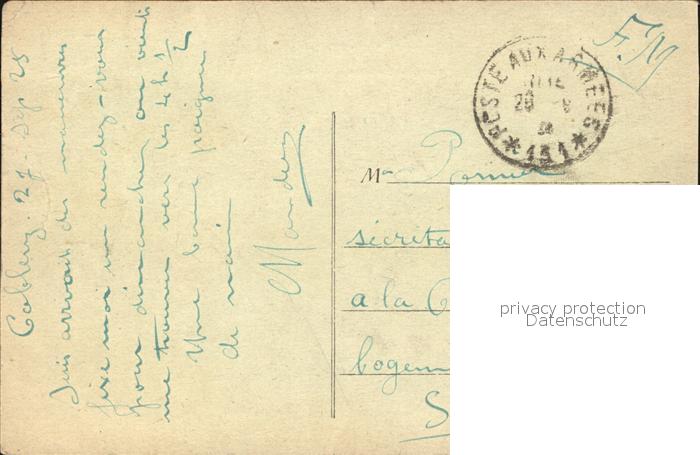 Coblenz. 27. Sep 25
Suis arrivait des manœuvres
fixe moi un rendez-vous
pour dimanche ou vient
me trouver vers les 4h 1/2
Une bonne poignée
de main
F.M
POSTE AUX ARMEES
*151*
Mr
sécréta
a la C
logem
S
privacy protection
Datenschutz